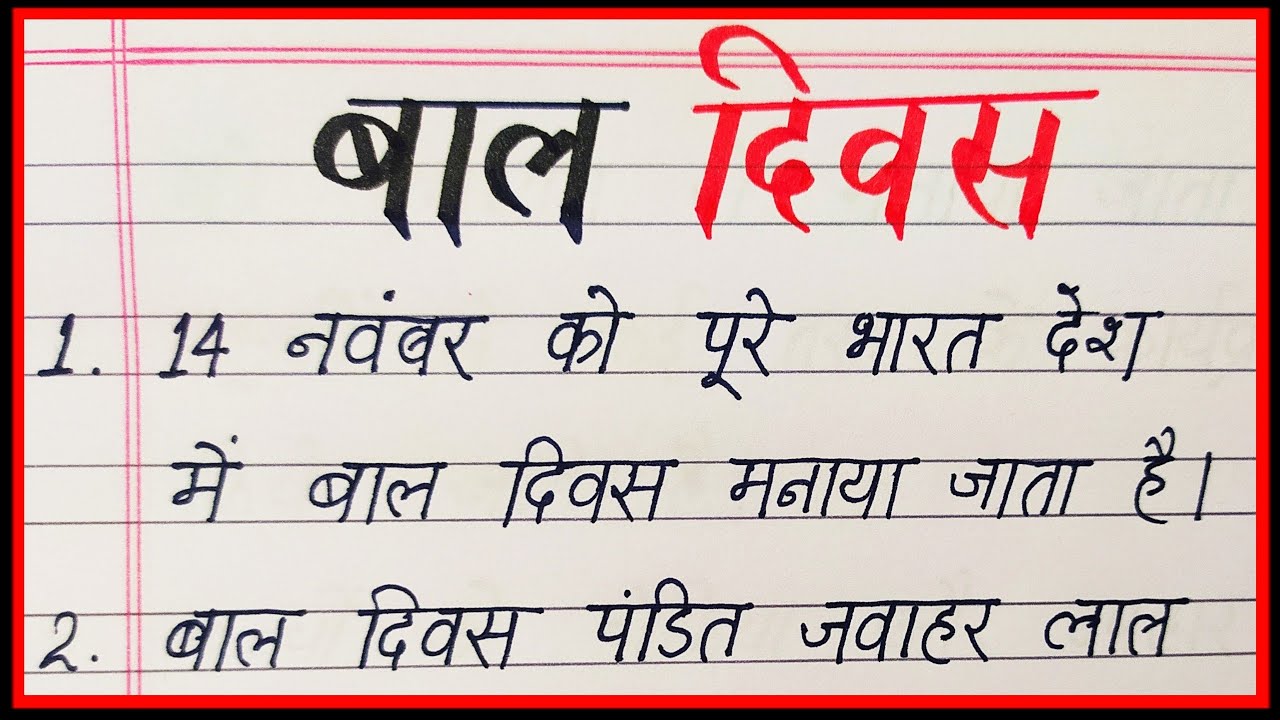 बाल दिवस
1. 14 नवंबर को पूरे भारत देश
में बाल दिवस मनाया जाता है।
2. बाल दिवस पंडित जवाहर लाल